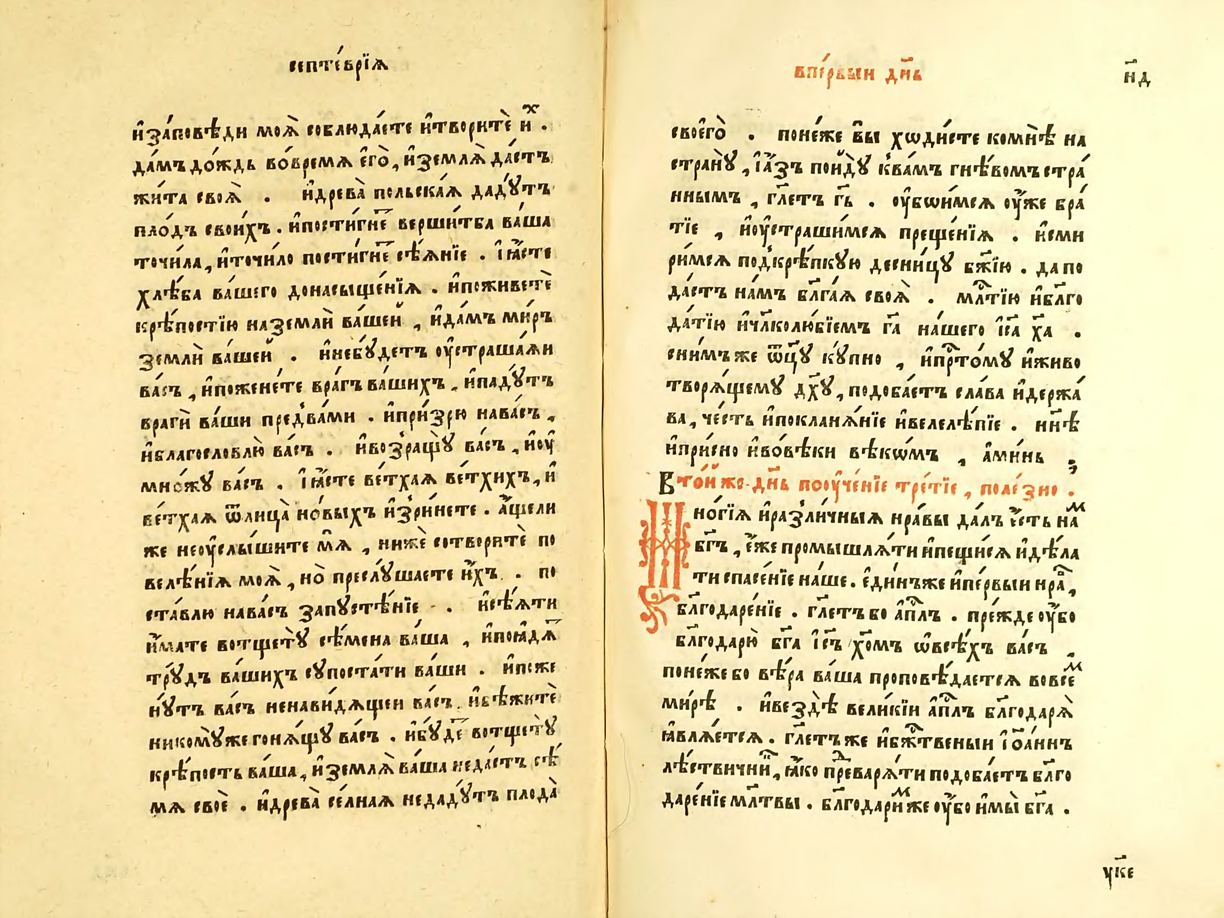 септе́врїѧ
и҆за́повѣди моѧ̀ соблюда́ете и҆творитѐ и҆̀ⷯ .
да́мъ дождь во́времѧ є҆го̀, и҆землѧ̀ да́стъ
жи́та своѧ̀ . и҆древа̀ польска́ѧ даду́тъ
пло́дъ свои́хъ . и҆пости́гне҇ вершитба ва́ша
точи́ла, и҆точи́ло пости́гне҇ сѣ́ѧнїе . І҆ꙗ҆́сте
хлѣ́ба ва́шего донасыще́нїѧ . и҆поживетѐ
крѣ́постїю наземлѝ ва́шей , и҆да́мъ ми́ръ
землѝ ва́шей . и҆небꙋ́детъ оу҆страша́ѧи
ва́съ , и҆пожене́те вра́гъ ва́шихъ , и҆падꙋ́тъ
врагѝ ва́ши пред̾ва́ми . и҆при́зрю нава́съ ,
и҆благословлю̀ ва́съ . и҆воз̾ращꙋ̀ ва́съ , и҆оу҆
множꙋ̀ ва́съ . І҆ꙗ҆́сте ве́тхаѧ ве́тхихъ, и҆
ве́тхаѧ ѿлица̀ но́выхъ и҆зри́нете . а҆́щели
же неоу҆слы́шите мѧ̀ , нижѐ сотворитѐ по
велѣ́нїѧ моѧ̀ , но̀ преслꙋ́шаете и҆́хъ . по
ста́влю нава́съ запꙋстѣ́нїе . и҆сѣ́ѧти
и҆́мате вотщетꙋ̀ сѣ́мена ва́ша , и҆поꙗ҆дѧ́
трꙋ́дъ ва́шихъ сꙋпоста́ти ва́ши . и҆поже
нꙋ́тъ ва́съ ненави́дѧщеи ва́съ . и҆бѣжитѐ
никомꙋ́же гонѧ́щꙋ ва́съ . и҆бꙋ́де҇ вотщетꙋ̀
крѣ́пость ва́ша , и҆землѧ̀ ва́ша неда́стъ сѣ́
мѧ своѐ . и҆древа̀ се́лнаѧ недадꙋ́тъ плода̀
впе́рвыи дн҃ь
н҃д
своегѡ̀ . поне́же вы̀ хѡ́дисте комнѣ̀ на
странꙋ̀ , І҆а҆́зъ пои́дꙋ к̾ва́мъ гнѣ́вомъ стра́
ннымъ , гл҃етъ гь҃ . оу҆бѡи́мсѧ оу҆́же бра́
тїе , и҆оу҆страши́мсѧ преще́нїѧ . и҆сми
ри́мсѧ под̾крѣ́пкꙋю десни́цꙋ бж҃їю . да по
да́стъ на́мъ бл҃га́ѧ своѧ̀ . мл҃тїю и҆бл҃го
да́тїю и҆чл҃колю́бїемъ га҃ на́шего і҆са҃ ха҃ .
сни́мъ же ѿц҃ꙋ кꙋ́пно , и҆пр҇то́мꙋ и҆живо
творѧ́щемꙋ дх҃ꙋ , подоба́етъ сла́ва и҆держа́
ва , че́сть и҆поклана́нїе и҆велелѣ́пїе . нн҃ѣ
и҆при́сно и҆во́вѣки вѣкѡ́мъ , а҆ми́нь .
В то́й же дн҃ь поꙋче́нїе тре́тїе , поле́зно .
Мно́гїѧ и҆разли́чныѧ нра́вы да́лъ є҆́сть на́ⷨ
бг҃ъ , є҆́же промышлѧ́ти и҆пещи́сѧ и҆дѣ́ла
ти спасе́нїе на́ше . є҆ди́нъ же и҆пе́рвыи нра́ ,
благодаре́нїе . гл҃етъ бо а҆пл҃ъ . пре́жде оу҆́бо
благодарю̀ бг҃а і҆с҃ъ хо҃мъ ѡ҆всѣ́хъ ва́съ ,
поне́же бо вѣ́ра ва́ша проповѣ́даетсѧ вовсеⷨ
ми́рѣ . и҆вездѣ̀ вели́кїи а҆пл҃ъ бл҃годарѧ̀
ꙗ҆влѧ́етсѧ . гл҃етъ же и҆бж҇твеныи І҆оа́ннъ
лѣ́ствичнїи , ꙗ҆́ко преварѧ́ти подоба́етъ бл҃го
даре́нїе мл҃твы . бл҃годариⷨ же оу҆́бо и҆мы̀ бг҃а .
у҃ке